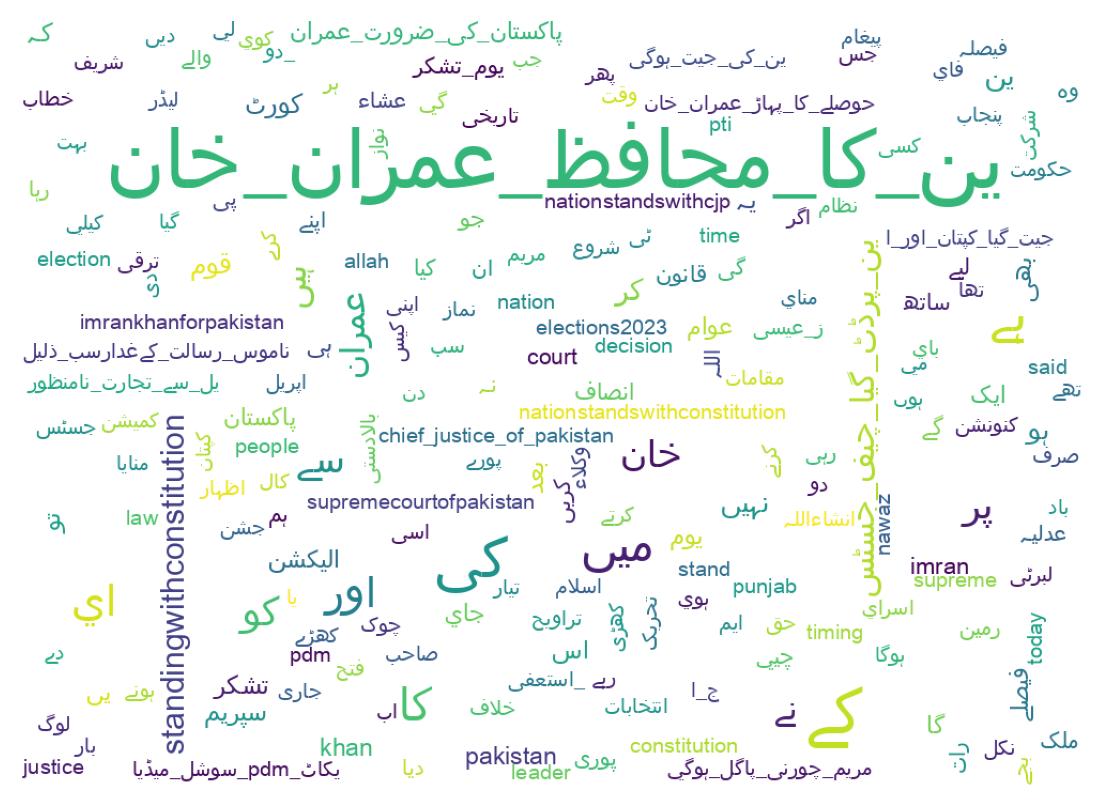 کہ دیں لی کوي پاکستان_کی_ضرورت_عمران پیغام فیصلہ
شریف والے دو_ یوم_تشکر جب ین_کی_جیت_ہوگی جس فاي ین
خطاب لیڈر کورٹ ہر عشاء گي تاریخی پھر وقت حوصلے_کا_پہاڑ_عمران_خان پنجاب وہ
بہت نواز pti کسی شرکت حکومت
ین_کا_محافظ_عمران_خان
رہا پی nationstandswithcjp یہ اگر نظام
کیلی گیا اپنے جو ٹی time جیت_گیا_کپتان_اور_ا
election ترقی قوم کرے allah کیا ان مریم شروع قانون گی لیے بھی
دی ہیں عمران اپنی نماز nation کر مناي ساتھ تھا
imrankhanforpakistan کیس elections2023 عوام ز_عیسی ہے
ناموس_رسالت_کےغدارسب_ذلیل ہی سپ court decision اللہ باي
یل_سے_تجارت_نامنظور اپریل دن نہ انصاف مقامات می said
ہوں ایک تھے
جسٹس کمیشن پاکستان بالادستی nationstandswithconstitution گے کنونشن ہو
کپتان people chief_justice_of_pakistan
منایا سے پورے بعد وکلاء خان کرنے رہی صرف
اظہار کال supremecourtofpakistan کریں دو
تو law جشن ہم اسی کرتے نہیں انشاءاللہ nawaz پر باد
ین_پرڈٹ_گیا_چیف_جسٹس
standingwithconstitution
الیکشن کی میں یوم عدلیہ
اي یا اور تیار اسلام stand punjab imran supreme لبرٹی
کو جاي ہوي اسراي
کھڑے چوک تراویح کھڑی تحریک ایم حق timing رمین today
دے pdm صاحب اس چیي ہوگا
فتح
یں ہونے تشکر جاری _استعفی رہے ج_ا فیصلے
لوگ سپریم اب کا خلاف انتخابات نے کے گا
بار khan pakistan پوری constitution رات نکل ملک
justice یکاٹ_pdm_سوشل_میڈیا دیا leader مریم_چورنی_پاگل_ہوگي بجے